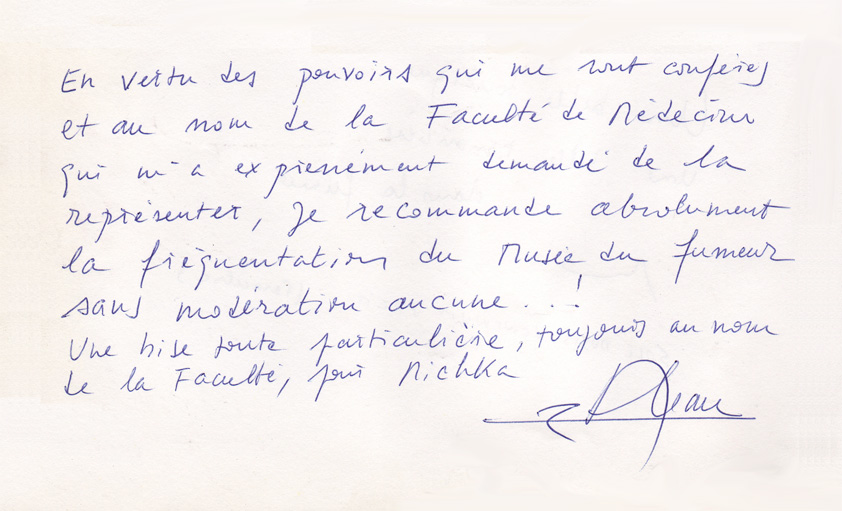 En vertu des pouvoirs qui me sont conférés
et au nom de la Faculté de Médecine
qui m'a expressément demandé de la
représenter, je recommande absolument
la fréquentation du Musée du fumeur
sans modération aucune...!
Une bise toute particulière, toujours au nom
de la Faculté, pour Michka